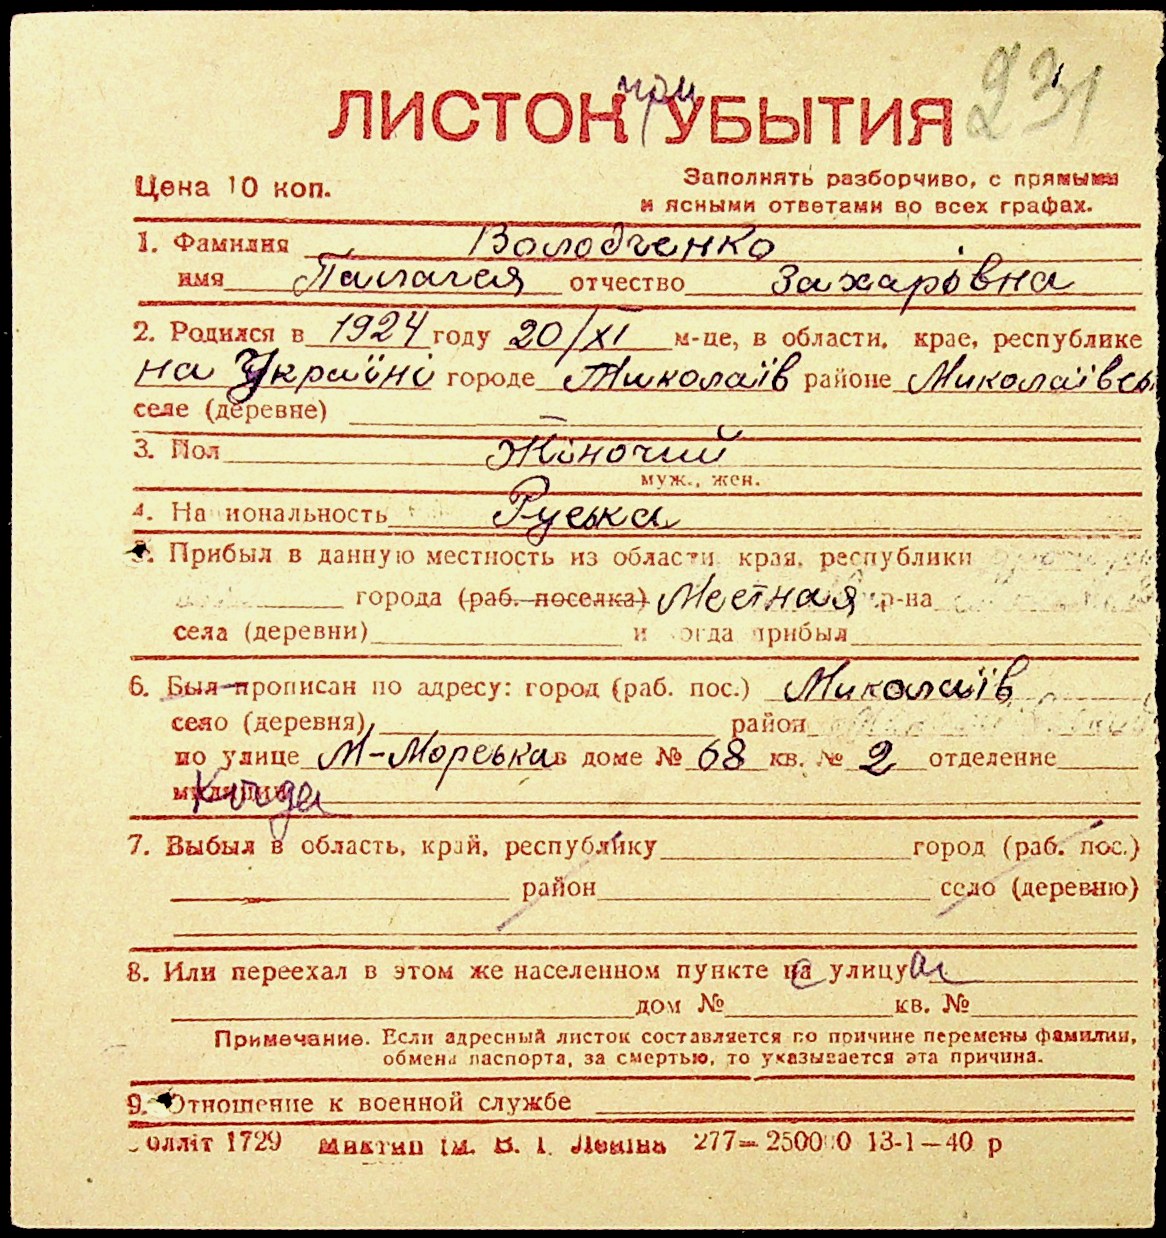 при 231
ЛИСТОК УБЫТИЯ
Цена 10 коп.
Заполнять разборчиво, с прямыми
и ясными ответами во всех графах.
1. Фамилия Володченко
имя Палагея отчество Захарівна
2. Родился в 1924 году 20/XI м-це, в области, крае, республике
на Україні городе Миколаїв районе Миколаївсь
селе (деревне) —
3. Пол Жіночий
муж., жен.
4. Национальность Руська
5. Прибыл в данную местность из области, края, республики
города (раб. поселка) Местная р-на
села (деревни) и когда прибыл
6. Был прописан по адресу: город (раб. пос.) Миколаїв
село (деревня) район
по улице М-Морська в доме № 68 кв. № 2 отделение
милиции
7. Выбыл в область, край, республику город (раб. пос.)
район село (деревню)
8. Или переехал в этом же населенном пункте на улицу
дом № кв. №
Примечание. Если адресный листок составляется по причине перемены фамилии,
обмена паспорта, за смертью, то указывается эта причина.
9. Отношение к военной службе
1729 Миктип ім. В. І. Леніна 277— 250000 13-1—40 р